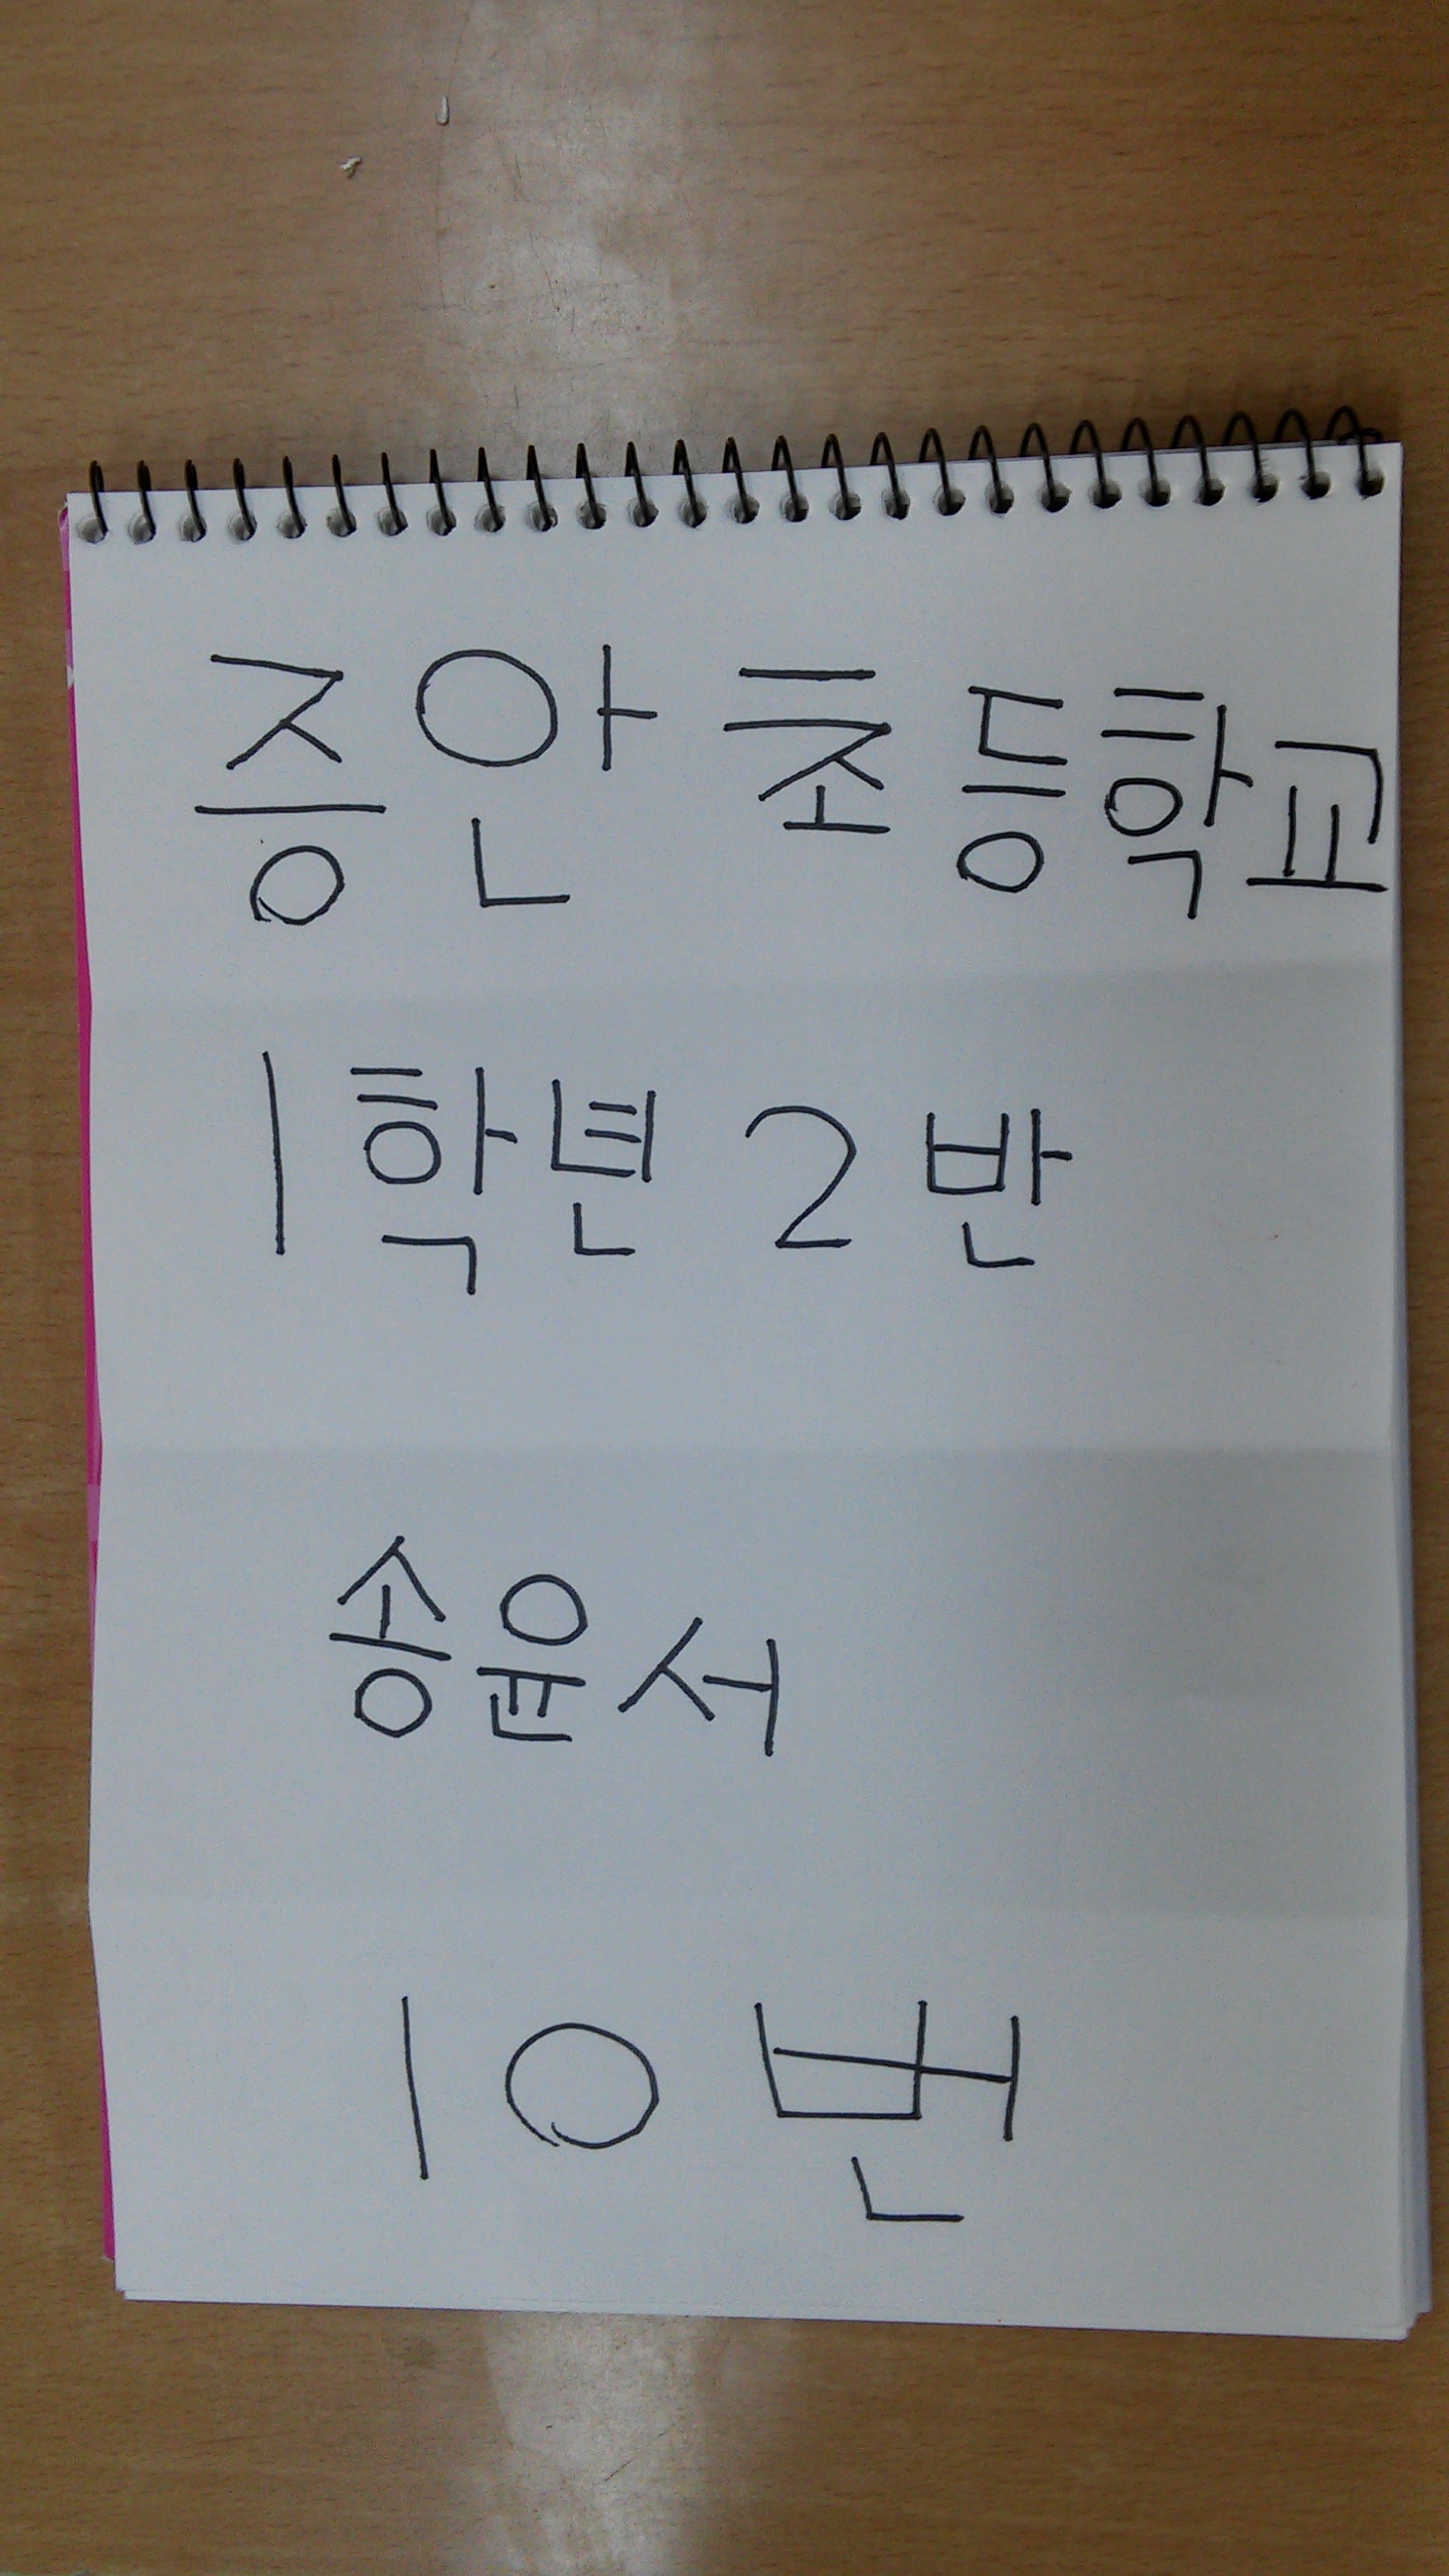 증안 초등학교
1학년 2반
송윤서
10번